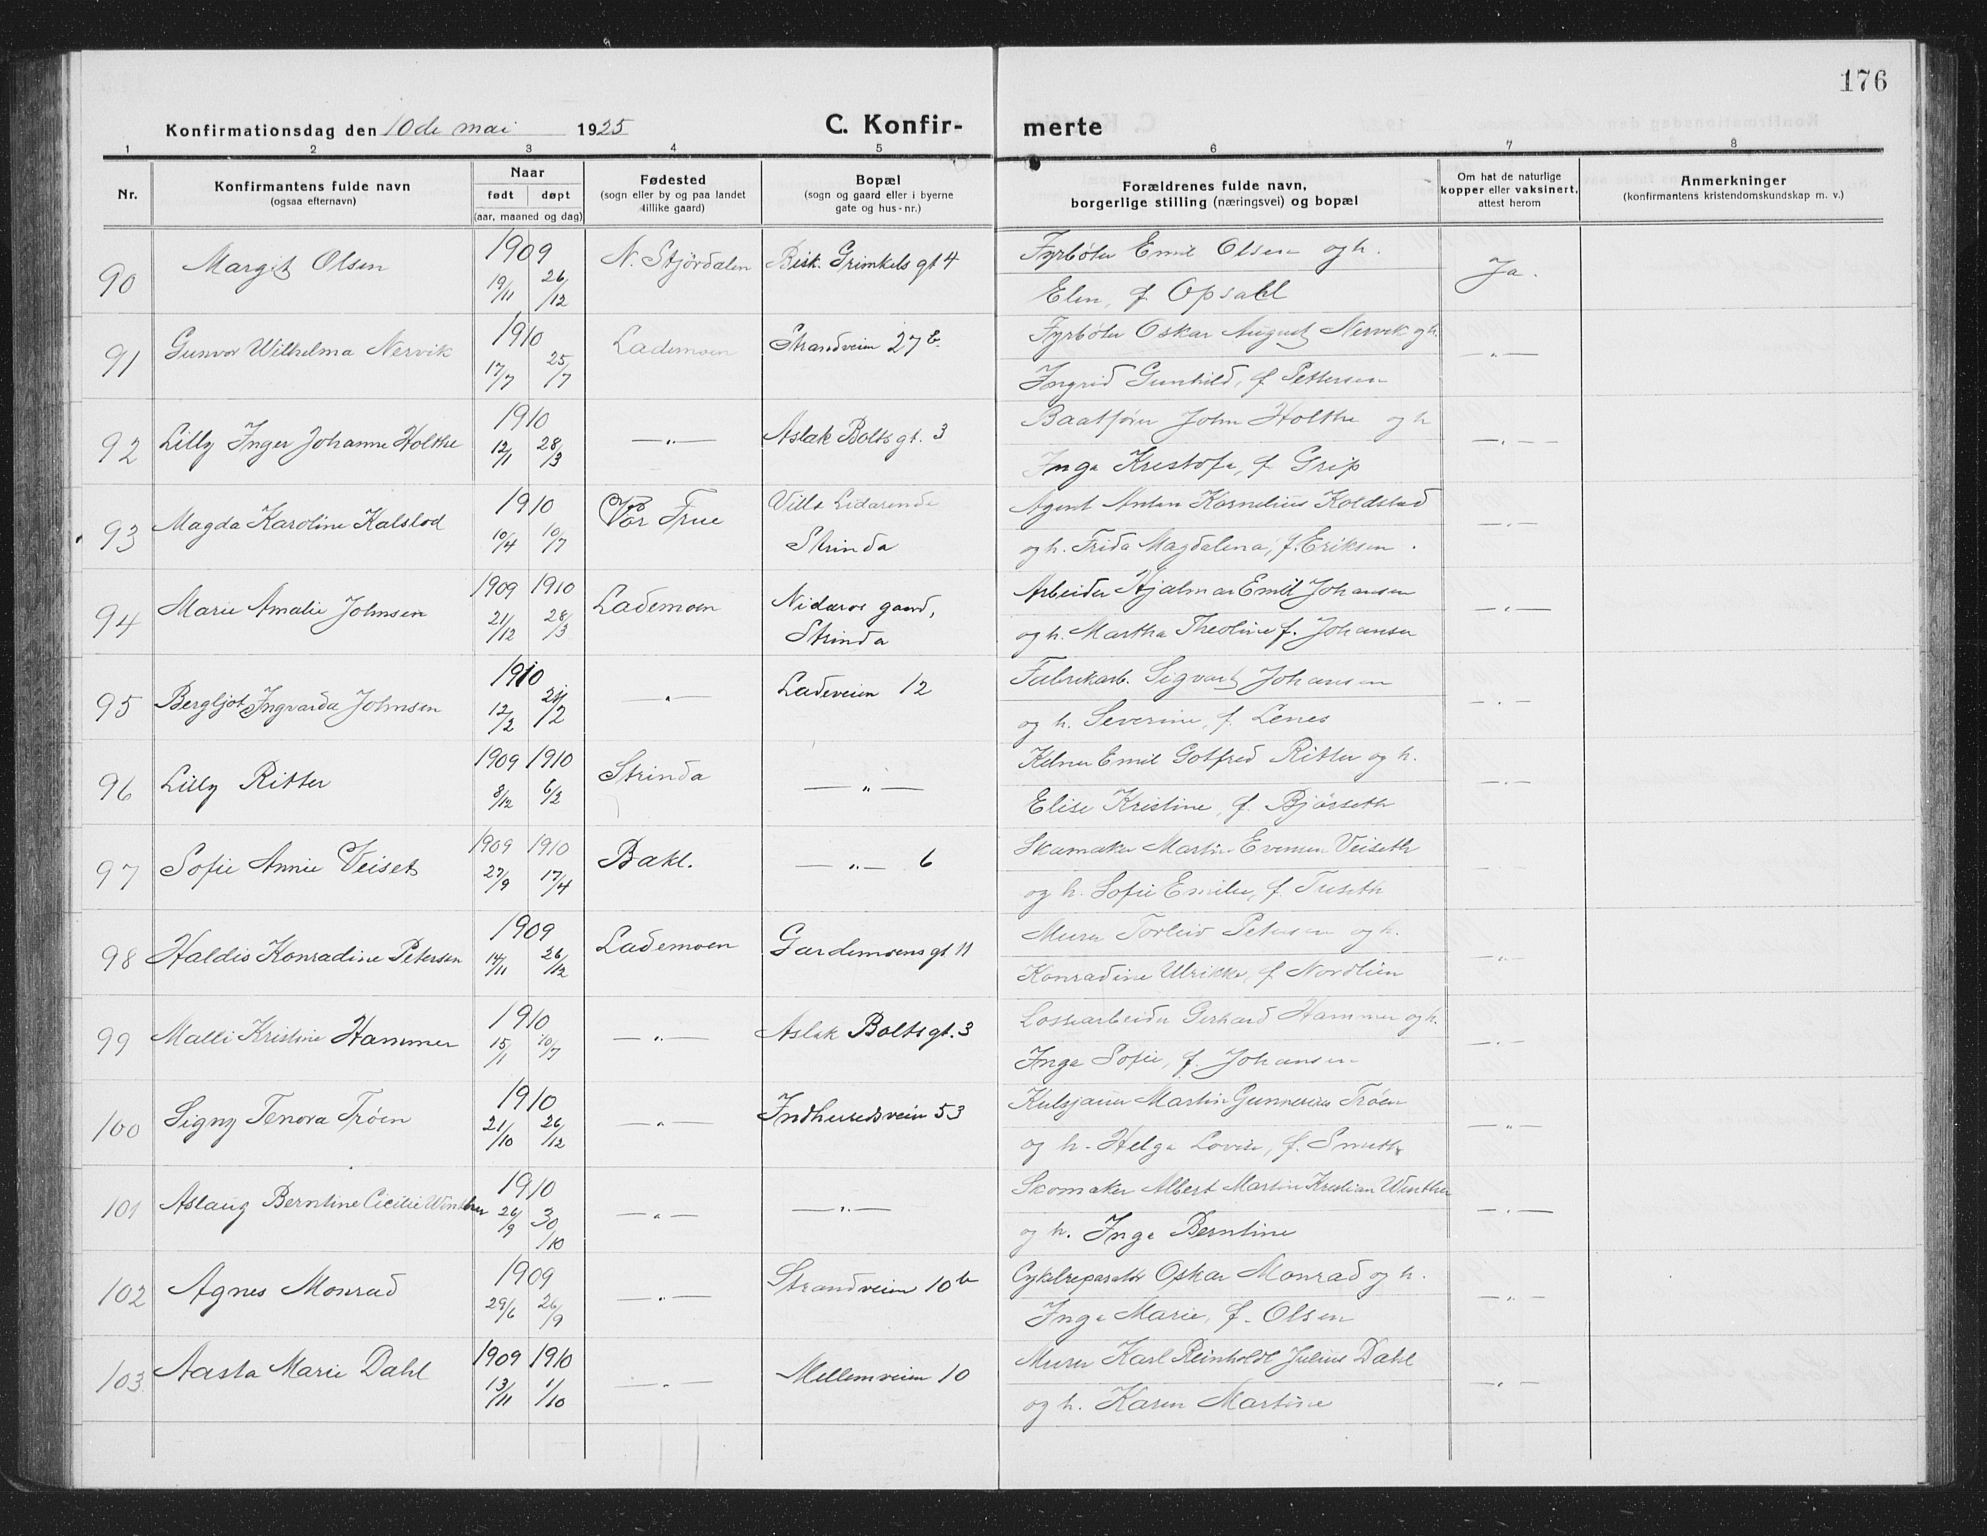 176
Konfirmationsdag den 10de mai 1925 C. Konfir- merte
1 2 3 4 5 6 7 8
Nr. Konfirmantens fulde navn (ogsaa efternavn) Naar født døpt (aar, maaned og dag) Fødested (sogn eller by og paa landet tillike gaard) Bopæl (sogn og gaard eller i byerne gate og hus-nr.) Forældrenes fulde navn, borgerlige stilling (næringsvei) og bopæl Om hat de naturlige kopper eller vaksinert, attest herom Anmerkninger (konfirmantens kristendomskundskap m. v.)
90 Margit Olsen 1909 19/11 26/12 N. Stjørdalen Bisk. Grimkels gt 4 Fyrbøter Emil Olsen og h. Ja.
Elen, f. Opsahl
91 Gunvor Wilhelma Nervik 1910 17/7 25/7 Lademoen Strandveien 27b. Fyrbøter Oskar August Nervik og h. —"—
Ingrid Gunhild, f Pettersen
92 Lilly Inger Johanne Holthe 1910 12/1 28/3 —"— Aslak Bolts gt. 3 Baatfører John Holthe og h —"—
Inga Kristofa, f. Grip
93 Magda Karoline Kalslod 1910 10/4 10/7 Vor Frue Villa Lidarende Agent Anton Kornelius Koldstad —"—
Strinda og h. Frida Magdalena, f. Eriksen.
94 Marie Amalie Johnsen 1909 1910 21/12 28/3 Lademoen Nidaros gaard, Arbeider Hjalmar Emil Johansen —"—
Strinda og h. Martha Theoline f. Johansen
95 Bergljot Ingvarda Johnsen 1910 12/2 24/2 —"— Ladeveien 12 Fabrikarb. Sigvart Johansen —"—
og h. Severine, f. Lenes
96 Lilly Ritter 1909 1910 8/12 6/2 Strinda —"— Kelner Emil Gotfred Ritter og h. —"—
Elise Kristine, f. Bjørseth
97 Sofie Annie Veiset 1909 1910 27/9 17/4 Bakl. —"— 6 Skomaker Martin Evensen Veiseth —"—
og h. Sofie Emilie, f. Tuseth
98 Haldis Konradine Petersen 1909 14/11 26/12 Lademoen Gardemoensgt 11 Murer Torleiv Petersen og h. —"—
Konradine Ulrikke, f. Nordlien
99 Malli Kristine Hammer 1910 15/1 10/7 —"— Aslak Boltsgt. 3 Lossearbeider Gerhard Hammer og h. —"—
Inga Sofie, f. Johansen
100 Signy Tenora Trøen 1910 21/10 26/12 —"— Indherredsveien 53 Kulsjauer Martin Gunnerius Trøen —"—
og h. Helga Lovise, f. Smeth
101 Aslaug Berntine Cicilie Winther 1910 26/9 30/10 —"— —"— Skomaker Albert Martin Kristian Winther —"—
og h. Inga Berntine
102 Agnes Monrad 1909 29/6 26/9 —"— Strandveien 10b Cykelreparatør Oskar Monrad og h. —"—
Inga Marie, f. Olsen
103 Aasta Marie Dahl 1909 1910 13/11 1/10 —"— Mellemveien 10 Murer Karl Reinholdt Julius Dahl —"—
og h. Karen Martine